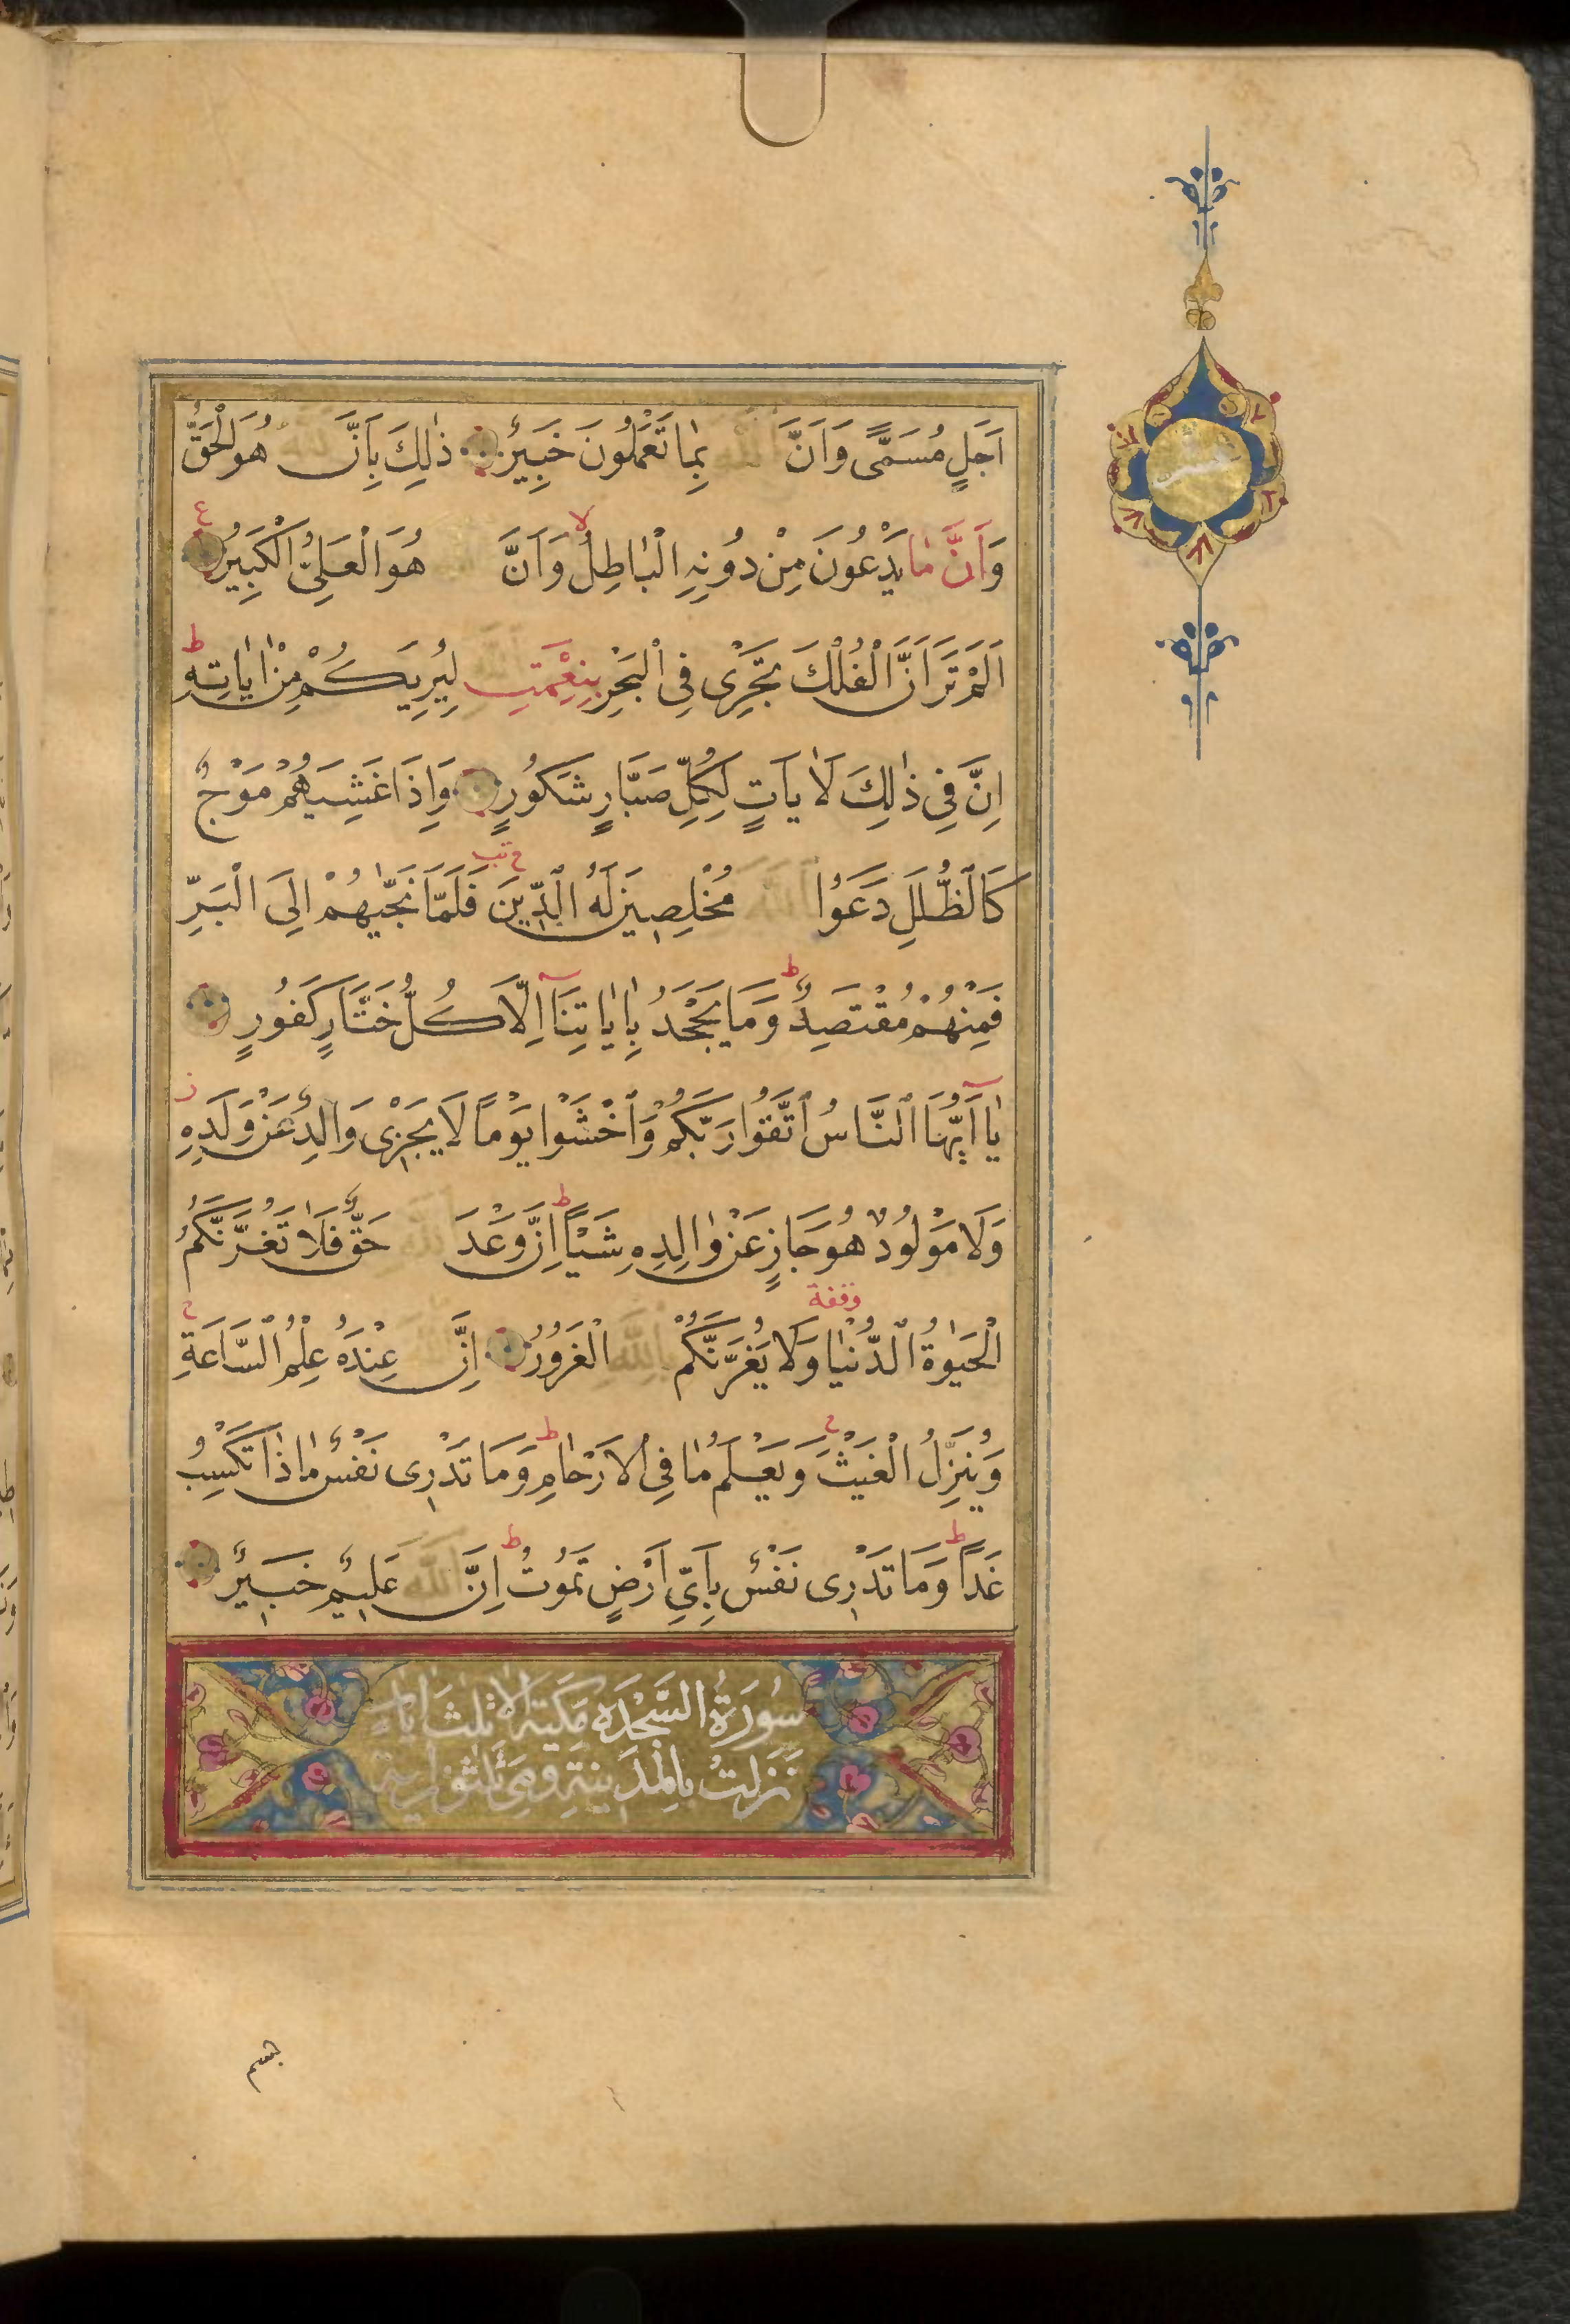 اَجَلٍ مُسَمًّى وَاَنَّ اللّٰهَ بِمَا تَعْمَلُونَ خَبِيرٌ ذٰلِكَ بِاَنَّ اللّٰهَ هُوَ الْحَقُّ
ع
وَاَنَّ مَا يَدْعُونَ مِنْ دُونِهِ الْبَاطِلُ لا وَاَنَّ اللّٰهَ هُوَ الْعَلِيُّ الْكَبِيرُ
اَلَمْ تَرَ اَنَّ الْفُلْكَ تَجْرٖى فِى الْبَحْرِ بِنِعْمَتِ اللّٰهِ لِيُرِيَكُمْ مِنْ اٰيَاتِهٖ ط
اِنَّ فٖى ذٰلِكَ لَاٰيَاتٍ لِكُلِّ صَبَّارٍ شَكُورٍ وَاِذَا غَشِيَهُمْ مَوْجٌ
كَالظُّلَلِ دَعَوُا اللّٰهَ مُخْلِصٖينَ لَهُ الدّٖينَ فَلَمَّا نَجّٰيهُمْ اِلَى الْبَرِّ
فَمِنْهُمْ مُقْتَصِدٌ ط وَمَا يَجْحَدُ بِاٰيَاتِنَا اِلَّا كُلُّ خَتَّارٍ كَفُورٍ
يَا اَيُّهَا النَّاسُ اتَّقُوا رَبَّكُمْ وَاخْشَوْا يَوْمًا لَا يَجْزٖى وَالِدٌ عَنْ وَلَدِهٖ ز
وَلَا مَوْلُودٌ هُوَ جَازٍ عَنْ وَالِدِهٖ شَيْـًٔا ط اِنَّ وَعْدَ اللّٰهِ حَقٌّ فَلَا تَغُرَّنَّكُمُ
الْحَيٰوةُ الدُّنْيَا وقفة وَلَا يَغُرَّنَّكُمْ بِاللّٰهِ الْغَرُورُ اِنَّ اللّٰهَ عِنْدَهُ عِلْمُ السَّاعَةِ ج
وَيُنَزِّلُ الْغَيْثَ ج وَيَعْلَمُ مَا فِى الْاَرْحَامِ ط وَمَا تَدْرٖى نَفْسٌ مَاذَا تَكْسِبُ
غَدًا ط وَمَا تَدْرٖى نَفْسٌ بِاَىِّ اَرْضٍ تَمُوتُ ط اِنَّ اللّٰهَ عَلٖيمٌ خَبٖيرٌ
سُورَةُ السَّجْدَةِ مَكِّيَّة اِلَّا ثَلٰثَ اٰيَاتٍ
نَزَلَتْ بِالْمَدٖينَةِ وَهِىَ ثَلٰثُونَ اٰيَة
بسم